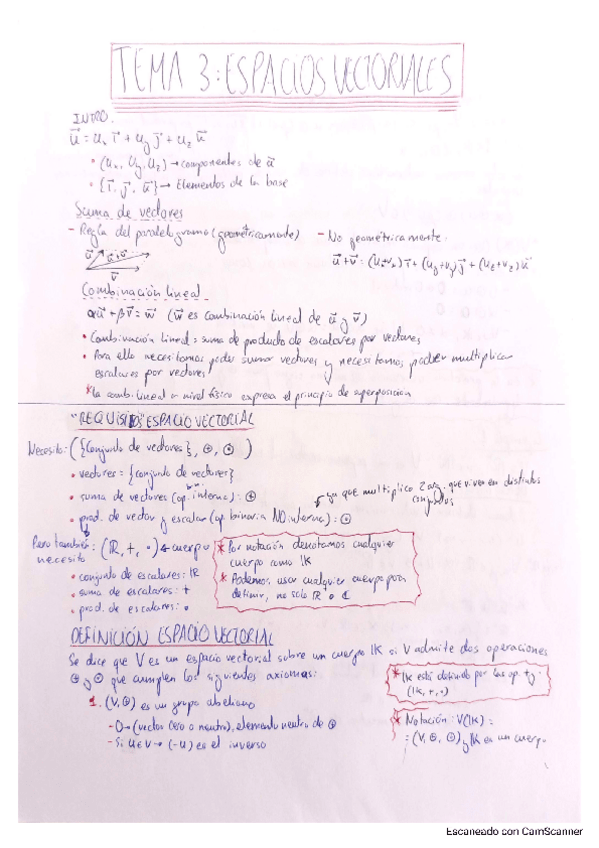 TEMA 3: ESPACIOS VECTORIALES
INTRO.
u⃗ = uₓ i⃗ + u_y j⃗ + u_z k⃗
• (uₓ, u_y, u_z) → componentes de u⃗
• {i⃗, j⃗, k⃗} → Elementos de la base
Suma de vectores
- Regla del paralelogramo (geométricamente)
u⃗ u⃗+v⃗
v⃗
- No geométricamente:
u⃗+v⃗ = (uₓ+vₓ) i⃗ + (u_y+v_y) j⃗ + (u_z+v_z) k⃗
Combinación lineal
αu⃗ + βv⃗ = w⃗ (w⃗ es combinación lineal de u⃗ y v⃗)
• Combinación lineal = suma de producto de escalares por vectores
• Para ello necesitamos poder sumar vectores y necesitamos poder multiplicar
escalares por vectores
* la comb. lineal a nivel físico expresa el principio de superposición
"REQUISITOS" ESPACIO VECTORIAL
Necesito: ({Conjunto de vectores}, ⊕, ⊙)
• vectores = {conjunto de vectores}
• suma de vectores (op. interna): ⊕
ya que multiplico 2 arg. que viven en distintos
conjuntos
• prod. de vector y escalar (op. binaria NO interna): ⊙
Pero también necesito: (ℝ, +, ·) ← cuerpo
• conjunto de escalares: ℝ
• suma de escalares: +
• prod. de escalares: ·
* Por notación denotamos cualquier
cuerpo como 𝕂
* Podemos usar cualquier cuerpo para
definir, no solo ℝ o ℂ
DEFINICIÓN ESPACIO VECTORIAL
Se dice que V es un espacio vectorial sobre un cuerpo 𝕂 si V admite dos operaciones
⊕ y ⊙ que cumplen los siguientes axiomas:
1. (V, ⊕) es un grupo abeliano
- 0 → (vector cero o neutro), elemento neutro de ⊕
- Si u∈V → (-u) es el inverso
* 𝕂 está definido por las op. + y ·
(𝕂, +, ·)
* Notación: V(𝕂) =
= (V, ⊕, ⊙) y 𝕂 es un cuerpo
Escaneado con CamScanner